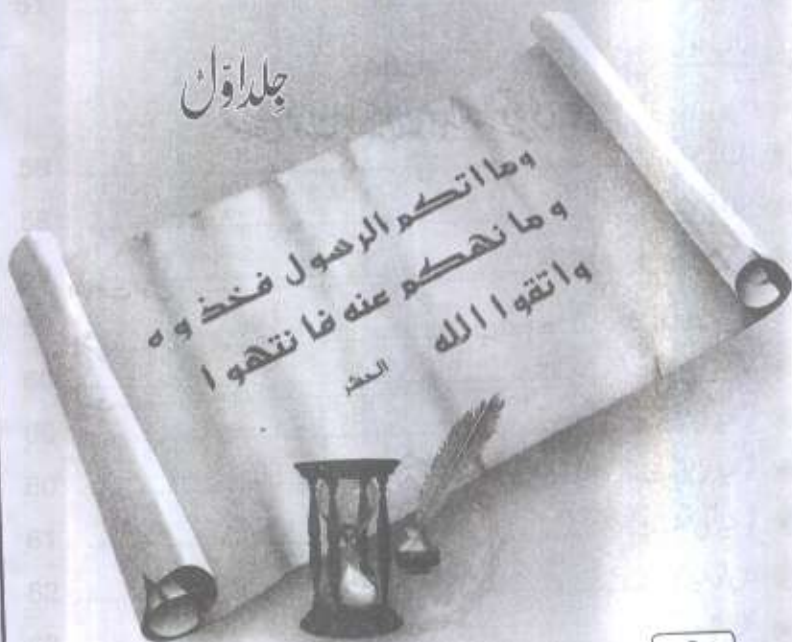 جلد اوّل
وما اتكم الرسول فخذ وه
و ما نهكم عنه فا نتهو ا
واتقوا الله
الحشر